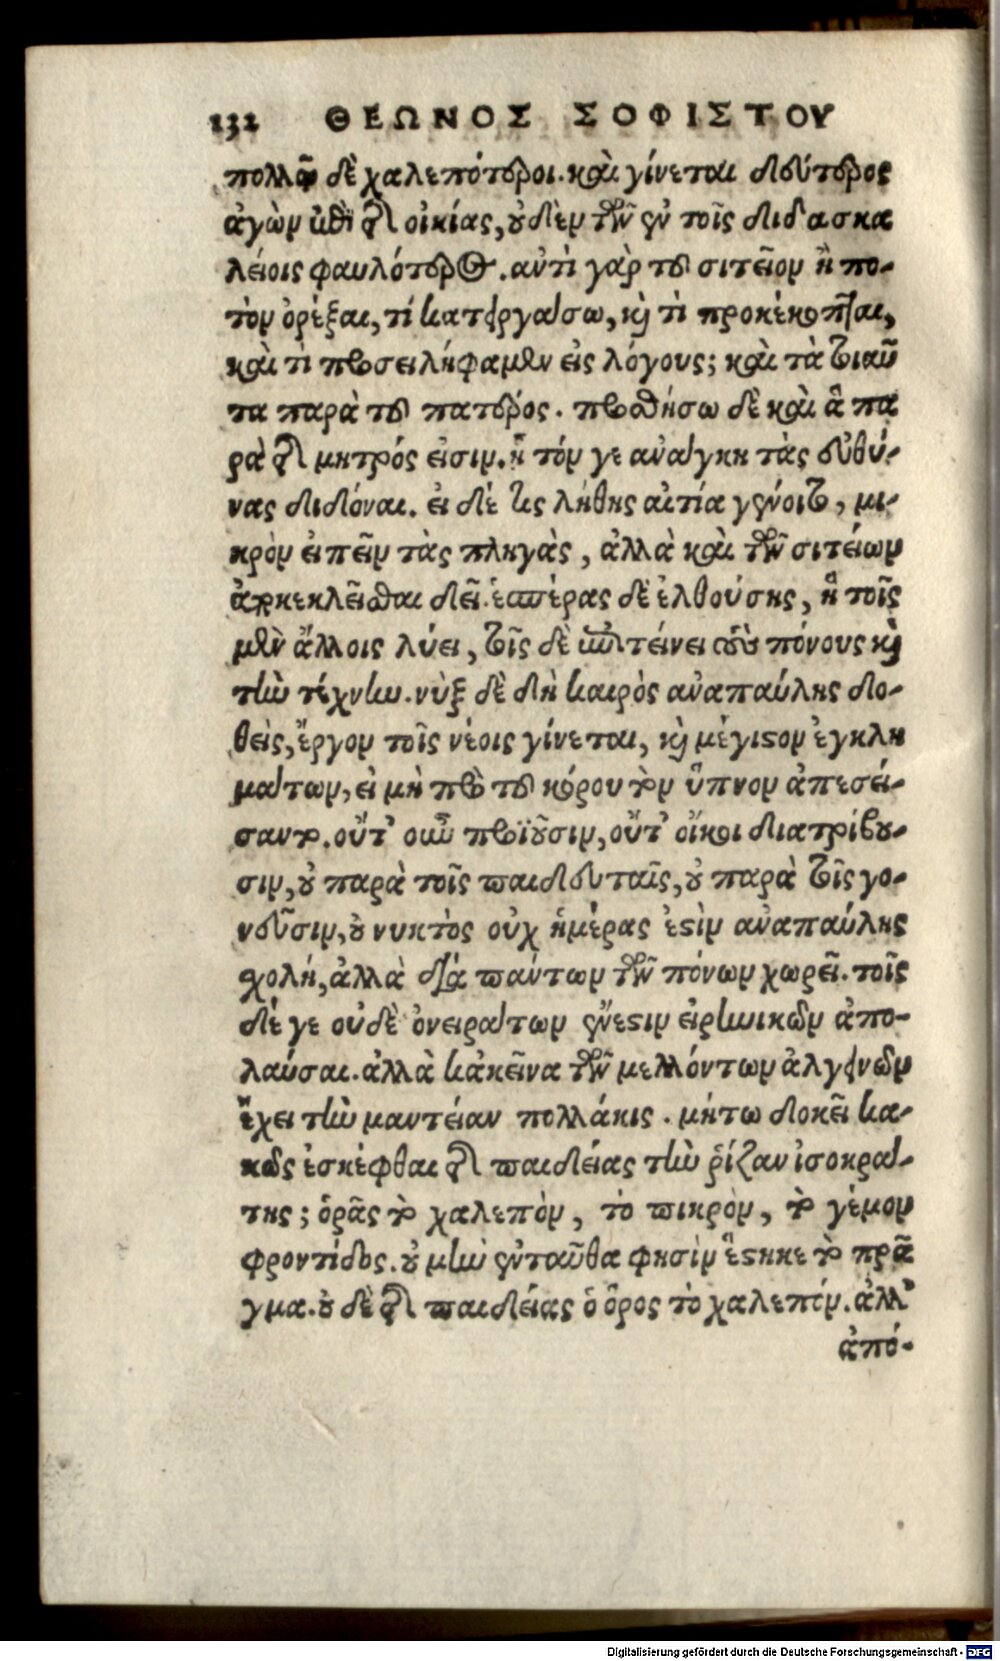 132 ΘΕΩΝΟΣ ΣΟΦΙΣΤΟΥ
πολλῷ δὲ χαλεπότεροι. καὶ γίνεται δεύτερος
ἀγὼν ἐπὶ τῆς οἰκίας, οὐδὲν τῶν ἐν τοῖς διδασκα
λείοις φαυλότερος. ἀντὶ γὰρ τοῦ σιτεῖον ἢ πο-
τὸν ὀρέξαι, τί κατείργασω, καὶ τὶ προκέκοπται,
καὶ τὶ προσειλήφαμεν εἰς λόγους; καὶ τὰ τοιαῦ
τα παρὰ τοῦ πατρός. προσθήσω δὲ καὶ ἃ πα
ρὰ τῆς μητρός εἰσιν. ᾗ τόν γε ἀνάγκη τὰς εὐθύ-
νας διδόναι. εἰ δέ τις λήθης αἰτία γένοιτο, μι-
κρὸν εἰπεῖν τὰς πληγὰς, ἀλλὰ καὶ τῶν σιτείων
ἀποκεκλεῖσθαι δεῖ. ἑσπέρας δὲ ἐλθούσης, ἣ τοῖς
μὲν ἄλλοις λύει, τοῖς δὲ ἐπιτείνει τοὺς πόνους καὶ
τὴν τέχνην. νὺξ δὲ δὴ καιρὸς ἀναπαύλης δο-
θεὶς, ἔργον τοῖς νέοις γίνεται, καὶ μέγιστον ἐγκλη
μάτων, εἰ μὴ πρὸ τοῦ κόρου τὸν ὕπνον ἀπεσεί-
σαντο. οὔτ' οὖν προϊοῦσιν, οὔτ' οἴκοι διατρίβου-
σιν, οὐ παρὰ τοῖς παιδευταῖς, οὐ παρὰ τοῖς γο-
νεῦσιν, οὐ νυκτὸς οὐχ ἡμέρας ἐστὶν ἀναπαύλης
σχολή, ἀλλὰ διὰ πάντων τῶν πόνων χωρεῖ. τοῖς
δέ γε οὐδὲ ὀνειράτων ἔνεστιν εἰρηνικῶν ἀπο-
λαῦσαι. ἀλλὰ κἀκεῖνα τῶν μελλόντων ἀλγεινῶν
ἔχει τὴν μαντείαν πολλάκις. μήτω δοκεῖ κα-
κῶς ἐσκέφθαι τῆς παιδείας τὴν ῥίζαν ἰσοκρά-
της; ὁρᾷς τὸ χαλεπὸν, τὸ πικρὸν, τὸ γέμον
φροντίδος. οὐ μὴν ἐνταῦθα φησὶν ἕστηκε τὸ πρᾶ
γμα. οὐ δὲ τῆς παιδείας ὁ ὅρος τὸ χαλεπόν. ἀλλ'
ἀπό-
Digitalisierung gefördert durch die Deutsche Forschungsgemeinschaft - DFG